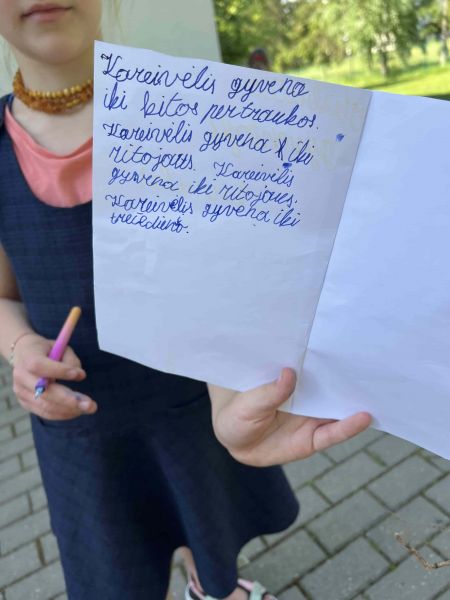 Kareivėlis gyvena
iki kitos pertraukos.
Kareivėlis gyvena iki
ritojaus. Kareivėlis
gyvena iki ritojaus.
Kareivėlis gyvena iki
trečedienio.